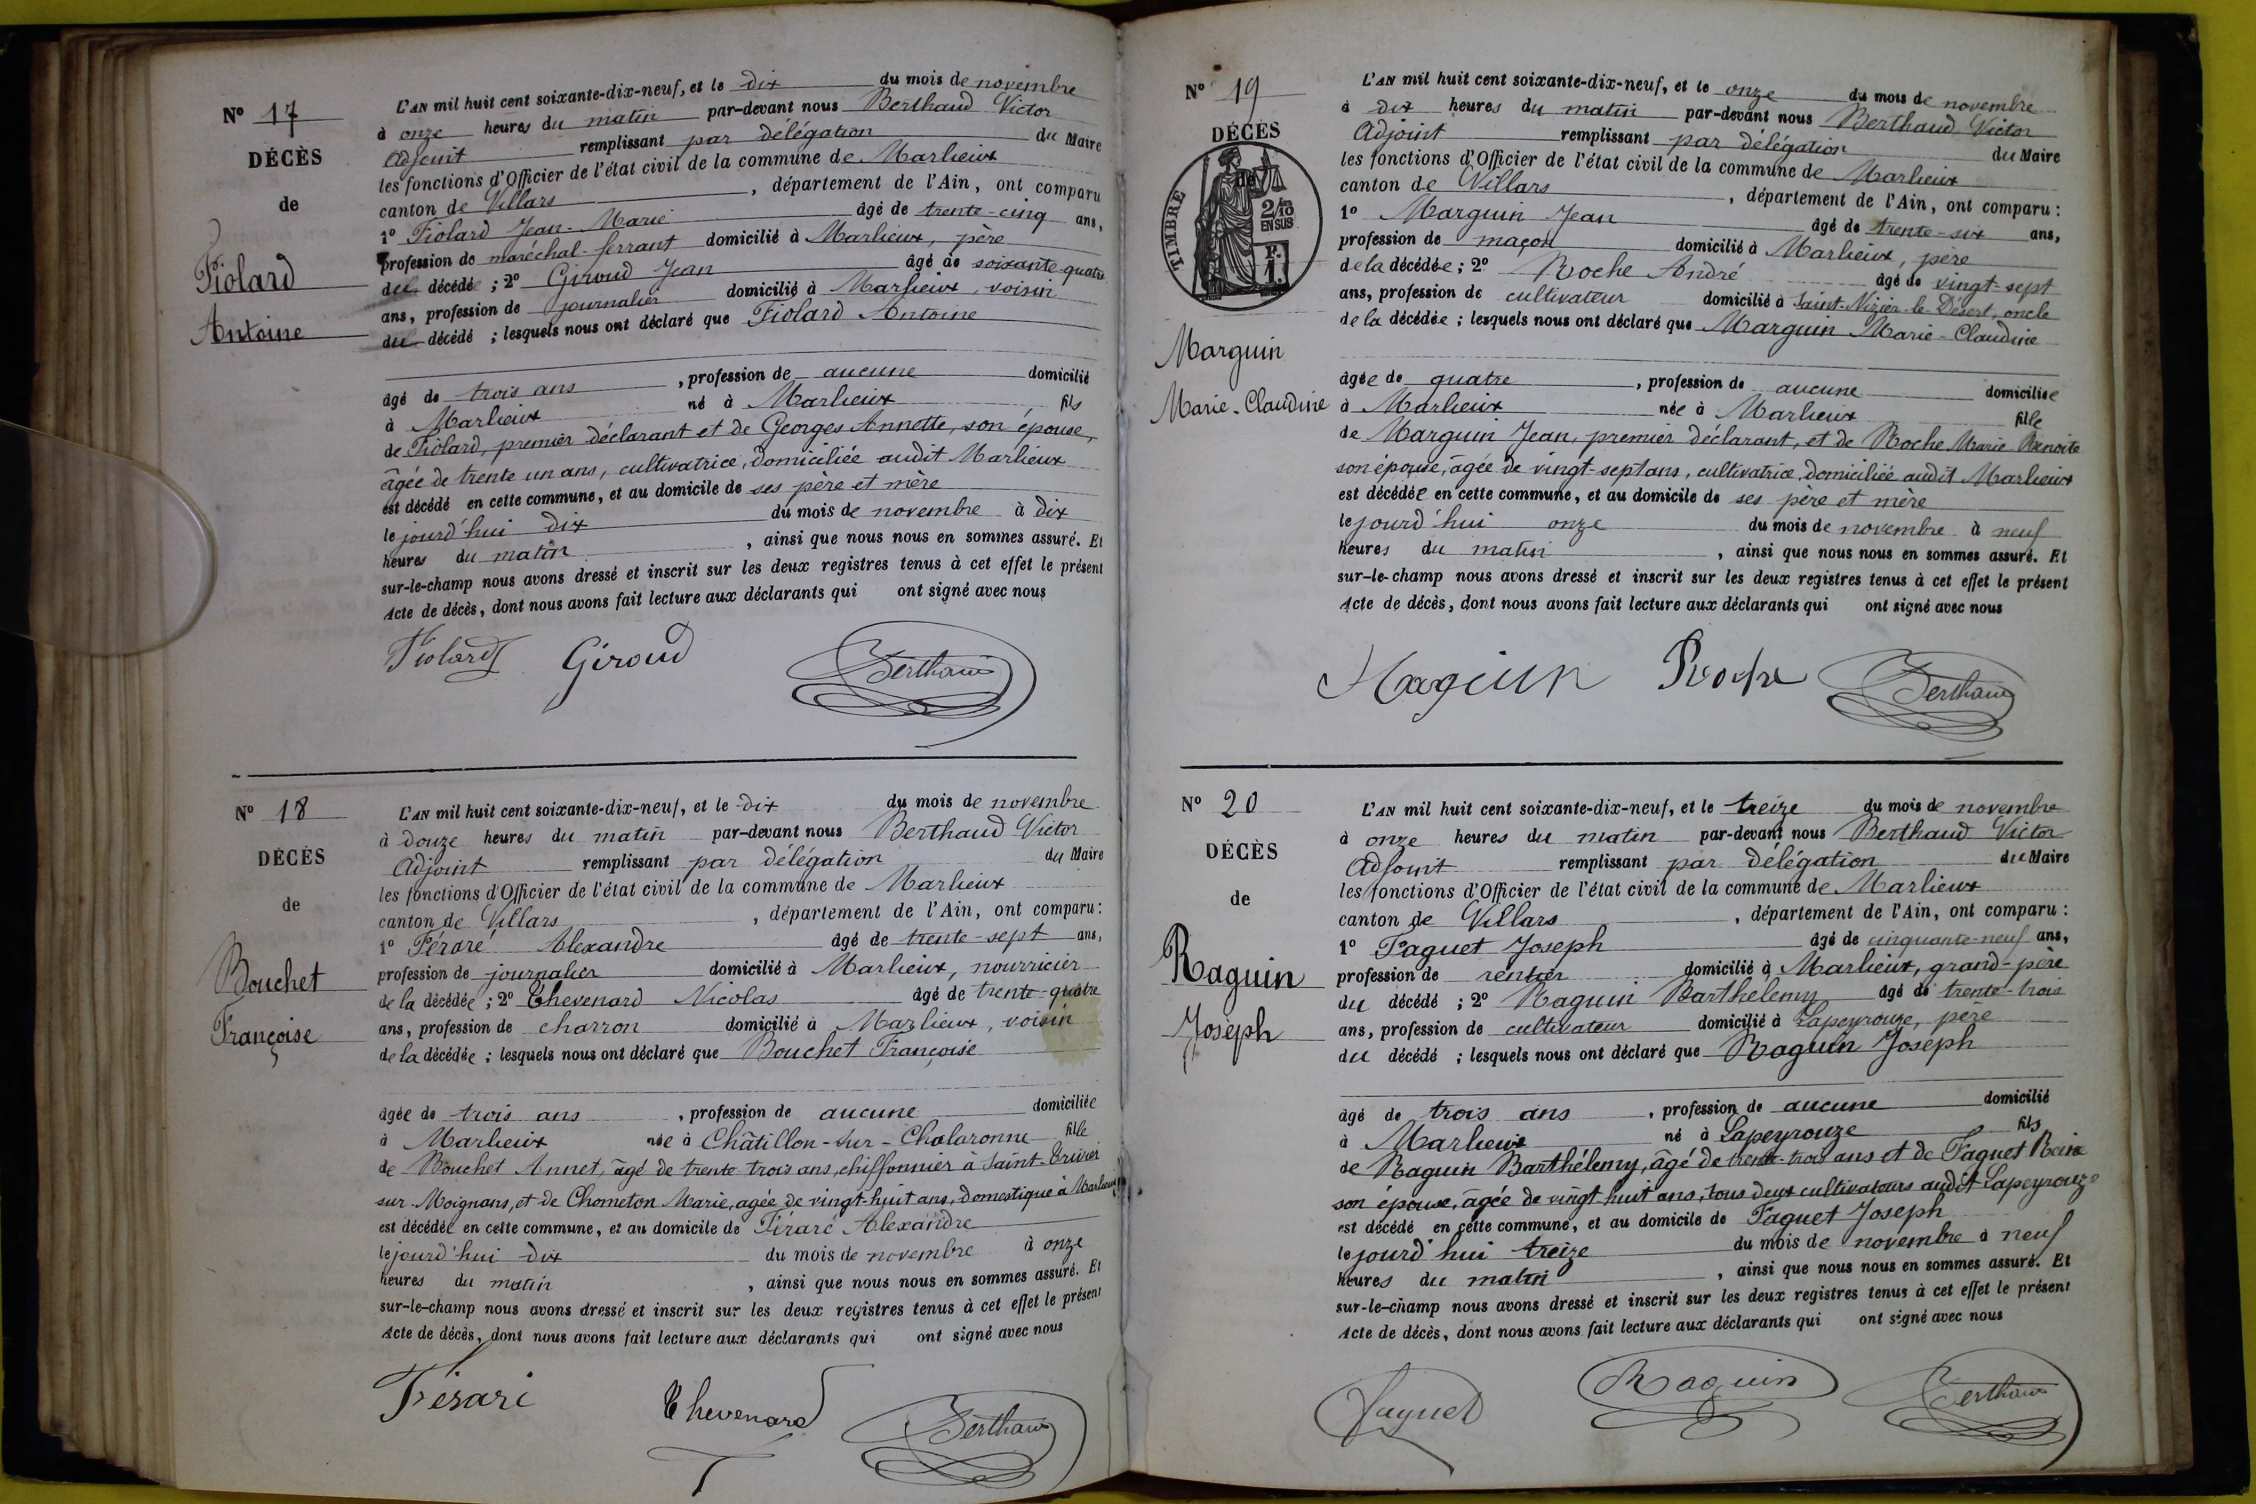 N° 17
DÉCÈS
de
Fiolard
Antoine
L'AN mil huit cent soixante-dix-neuf, et le dix du mois de novembre
à onze heures du matin par-devant nous Berthaud Victor
Adjoint remplissant par délégation du Maire
les fonctions d'Officier de l'état civil de la commune de Marlieux
canton de Villars, département de l'Ain, ont comparu
1° Fiolard Jean-Marie âgé de trente-cinq ans,
profession de maréchal-ferrant domicilié à Marlieux, père
du décédé ; 2° Giroud Jean âgé de soixante-quatre
ans, profession de journalier domicilié à Marlieux, voisin
du décédé ; lesquels nous ont déclaré que Fiolard Antoine
âgé de trois ans, profession de aucune domicilié
à Marlieux né à Marlieux fils
de Fiolard, premier déclarant et de Georges Annette, son épouse,
âgée de trente un ans, cultivatrice, domiciliée audit Marlieux
est décédé en cette commune, et au domicile de ses père et mère
le jourd'hui dix du mois de novembre à dix
heures du matin, ainsi que nous nous en sommes assuré. Et
sur-le-champ nous avons dressé et inscrit sur les deux registres tenus à cet effet le présent
Acte de décès, dont nous avons fait lecture aux déclarants qui ont signé avec nous
Fiolard Giroud Berthaud
N° 18
DÉCÈS
de
Bouchet
Françoise
L'AN mil huit cent soixante-dix-neuf, et le dix du mois de novembre
à douze heures du matin par-devant nous Berthaud Victor
Adjoint remplissant par délégation du Maire
les fonctions d'Officier de l'état civil de la commune de Marlieux
canton de Villars, département de l'Ain, ont comparu :
1° Féraré Alexandre âgé de trente-sept ans,
profession de journalier domicilié à Marlieux, nourricier
de la décédée ; 2° Thevenard Nicolas âgé de trente-quatre
ans, profession de charron domicilié à Marlieux, voisin
de la décédée ; lesquels nous ont déclaré que Bouchet Françoise
âgée de trois ans, profession de aucune domiciliée
à Marlieux née à Châtillon-sur-Chalaronne fille
de Bouchet Annet, âgé de trente trois ans, chiffonnier à Saint-Trivier
sur-Moignans, et de Chometon Marie, agée de vingt-huit ans, domestique à Marlieux
est décédée en cette commune, et au domicile de Féraré Alexandre
le jourd'hui dix du mois de novembre à onze
heures du matin, ainsi que nous nous en sommes assuré. Et
sur-le-champ nous avons dressé et inscrit sur les deux registres tenus à cet effet le présent
Acte de décès, dont nous avons fait lecture aux déclarants qui ont signé avec nous
Thevenard Berthaud
N° 19
DÉCÈS
de
TIMBRE
2/10
EN SUS
Marguin
Marie-Claudine
L'AN mil huit cent soixante-dix-neuf, et le onze du mois de novembre
à dix heures du matin par-devant nous Berthaud Victor
Adjoint remplissant par délégation du Maire
les fonctions d'Officier de l'état civil de la commune de Marlieux
canton de Villars, département de l'Ain, ont comparu :
1° Marguin Jean âgé de trente-six ans,
profession de maçon domicilié à Marlieux, père
de la décédée ; 2° Roche André âgé de vingt-sept
ans, profession de cultivateur domicilié à Saint-Nizier-le-Désert, oncle
de la décédée ; lesquels nous ont déclaré que Marguin Marie-Claudine
âgée de quatre, profession de aucune domiciliée
à Marlieux née à Marlieux fille
de Marguin Jean, premier déclarant, et de Roche Marie Benoite
son épouse, âgée de vingt-sept ans, cultivatrice, domiciliée audit Marlieux
est décédée en cette commune, et au domicile de ses père et mère
le jourd'hui onze du mois de novembre à neuf
heures du matin, ainsi que nous nous en sommes assuré. Et
sur-le-champ nous avons dressé et inscrit sur les deux registres tenus à cet effet le présent
Acte de décès, dont nous avons fait lecture aux déclarants qui ont signé avec nous
Roche Berthaud
N° 20
DÉCÈS
de
Raguin
Joseph
L'AN mil huit cent soixante-dix-neuf, et le treize du mois de novembre
à onze heures du matin par-devant nous Berthaud Victor
Adjoint remplissant par délégation du Maire
les fonctions d'Officier de l'état civil de la commune de Marlieux
canton de Villars, département de l'Ain, ont comparu :
1° Faguet Joseph âgé de cinquante-neuf ans,
profession de rentier domicilié à Marlieux, grand-père
du décédé ; 2° Raguin Barthélemy âgé de trente-trois
ans, profession de cultivateur domicilié à Lapeyrouze, père
du décédé ; lesquels nous ont déclaré que Raguin Joseph
âgé de trois ans, profession de aucune domicilié
à Marlieux né à Lapeyrouze fils
de Raguin Barthélemy, âgé de trente-trois ans et de Faguet Reine
son épouse, âgée de vingt huit ans, tous deux cultivateurs audit Lapeyrouze
est décédé en cette commune, et au domicile de Faguet Joseph
le jourd'hui treize du mois de novembre à neuf
heures du matin, ainsi que nous nous en sommes assuré. Et
sur-le-champ nous avons dressé et inscrit sur les deux registres tenus à cet effet le présent
Acte de décès, dont nous avons fait lecture aux déclarants qui ont signé avec nous
Faguet Raguin Berthaud